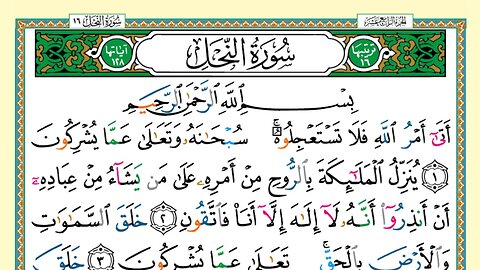 سُورَةُ النَّحۡل ١٦
الجزء الرابع عشر
ترتيبها ١٦
سُورَةُ النَّحۡلِ
آياتها ١٢٨
بِسۡمِ ٱللَّهِ ٱلرَّحۡمَٰنِ ٱلرَّحِيمِ
أَتَىٰٓ أَمۡرُ ٱللَّهِ فَلَا تَسۡتَعۡجِلُوهُۚ سُبۡحَٰنَهُۥ وَتَعَٰلَىٰ عَمَّا يُشۡرِكُونَ
١ يُنَزِّلُ ٱلۡمَلَٰٓئِكَةَ بِٱلرُّوحِ مِنۡ أَمۡرِهِۦ عَلَىٰ مَن يَشَآءُ مِنۡ عِبَادِهِۦٓ
أَنۡ أَنذِرُوٓاْ أَنَّهُۥ لَآ إِلَٰهَ إِلَّآ أَنَا۠ فَٱتَّقُونِ ٢ خَلَقَ ٱلسَّمَٰوَٰتِ
وَٱلۡأَرۡضَ بِٱلۡحَقِّۚ تَعَٰلَىٰ عَمَّا يُشۡرِكُونَ ٣ خَلَقَ